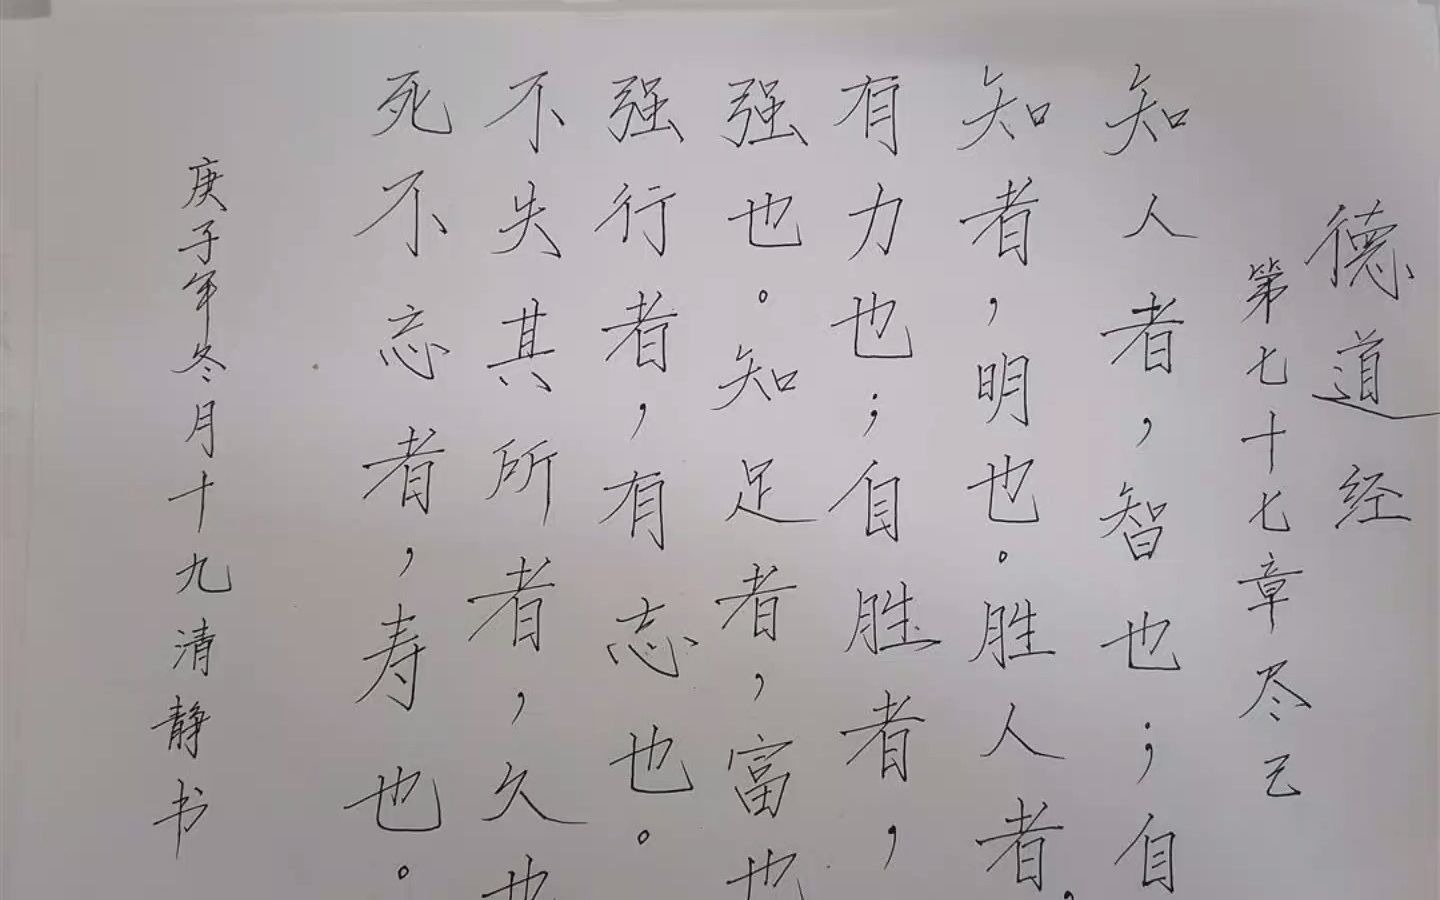 德道经
第七十七章尽己
知人者，智也；自
知者，明也。胜人者，
有力也；自胜者，
强也。知足者，富也
强行者，有志也。
不失其所者，久也
死不忘者，寿也。
庚子年冬月十九清静书